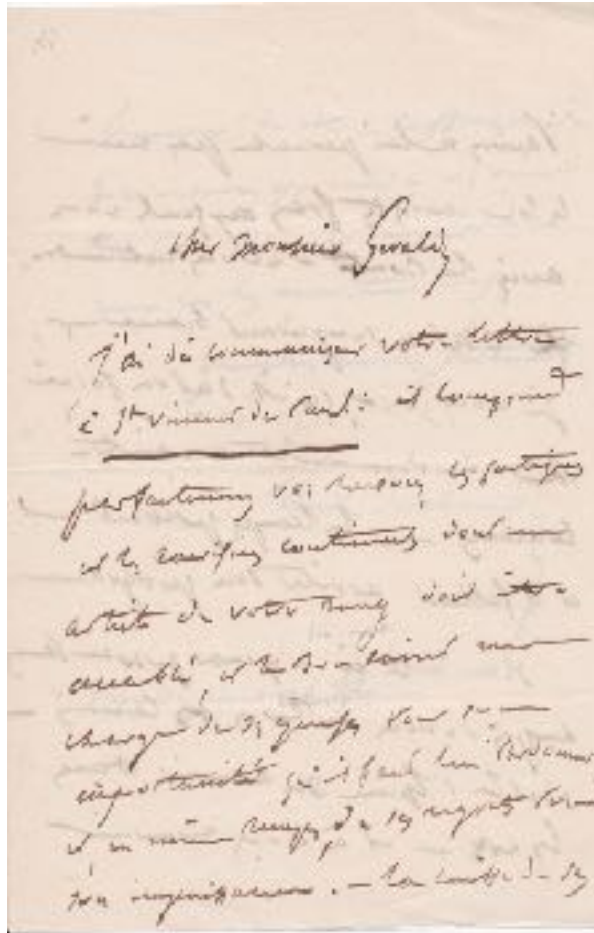 cher monsieur
J'ai dû communiquer votre lettre
à St Vincent de Paul : il comprend
parfaitement vos raisons, les fatigues
et les courses continuels dont un
artiste de votre rang doit être
accablé, et le Bon Saint me
charge de ses excuses pour son
importunité qu'il faut lui pardonner
et en même temps de ses regrets pour
son la caisse de ses